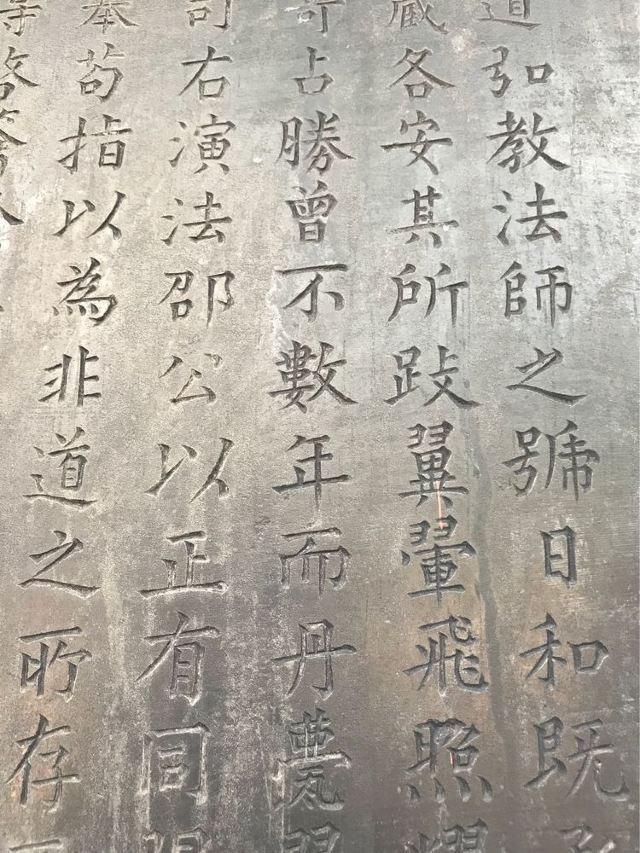 道弘教法師之號日和既
藏各安其所跂翼翬飛照耀
奇占勝曾不數年而丹甍
司右演法邵公以正有同
奉苟指以為非道之所存